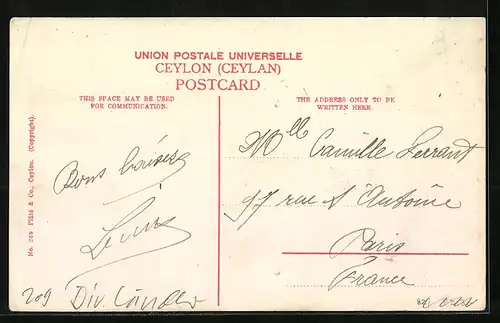 UNION POSTALE UNIVERSELLE
CEYLON (CEYLAN)
POSTCARD
THIS SPACE MAY BE USED
FOR COMMUNICATION.
THE ADDRESS ONLY TO BE
WRITTEN HERE.
No. 249 Plâté & Co., Ceylon. (Copyright).
Bons baisers
Mlle Camille Ferrant
97 rue St Antoine
Paris
France
209